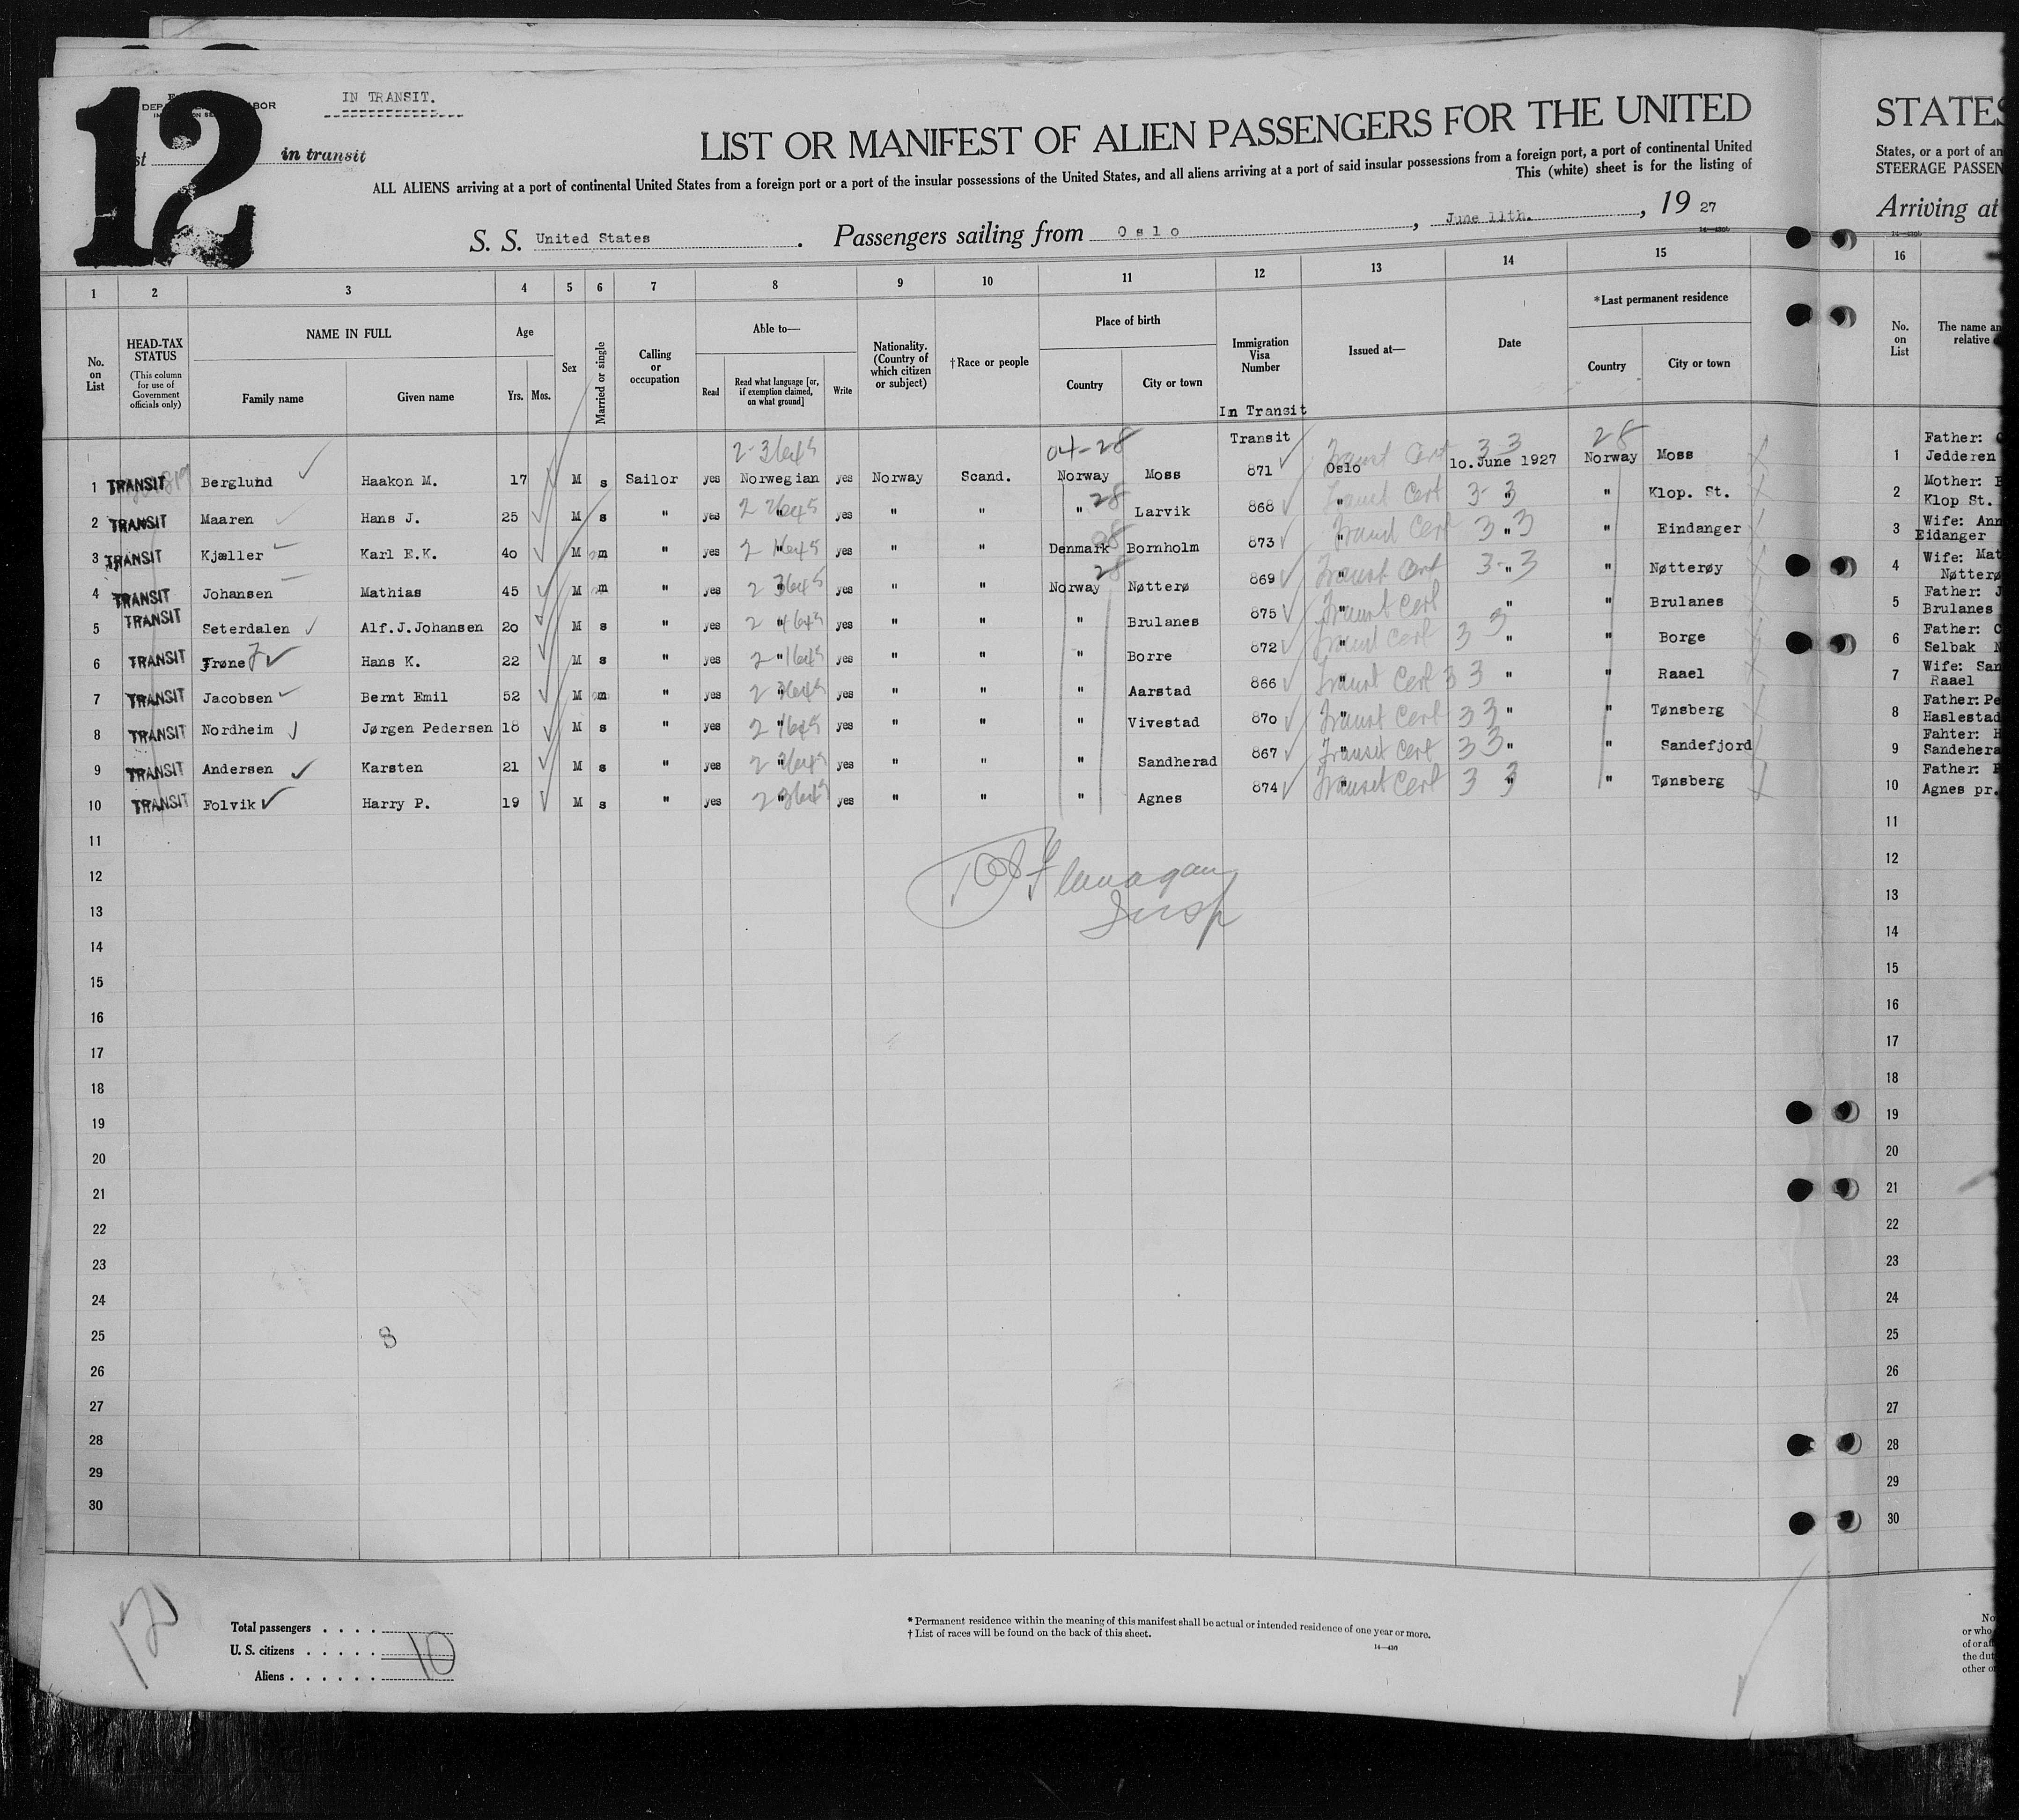 12
IN TRANSIT.
in transit
LIST OR MANIFEST OF ALIEN PASSENGERS FOR THE UNITED
ALL ALIENS arriving at a port of continental United States from a foreign port or a port of the insular possessions of the United States, and all aliens arriving at a port of said insular possessions from a foreign port, a port of continental United
This (white) sheet is for the listing of
S. S. United States . Passengers sailing from Oslo , June 11th. , 19 27
STATES
States, or a port of an
STEERAGE PASSEN
Arriving at
1 2 3 4 5 6 7 8 9 10 11 12 13 14 15 16
No. on List
HEAD-TAX STATUS (This column for use of Government officials only)
NAME IN FULL
Family name Given name
Age
Yrs. Mos.
Sex
Married or single
Calling or occupation
Able to—
Read Read what language [or, if exemption claimed, on what ground] Write
Nationality. (Country of which citizen or subject)
†Race or people
Place of birth
Country City or town
Immigration Visa Number
In Transit
Issued at—
Date
*Last permanent residence
Country City or town
No. on List
The name an
relative
2-3645 04-28 Transit Transit Cert 3 3 28
1 TRANSIT Berglund Haakon M. 17 M s Sailor yes Norwegian yes Norway Scand. Norway Moss 871 Oslo 10. June 1927 Norway Moss
2 TRANSIT Maaren Hans J. 25 M s " yes " yes " " " 28 Larvik 868 " Transit Cert 3-3 " " Klop. St.
3 TRANSIT Kjæller Karl E.K. 40 M m " yes " yes " " Denmark Bornholm 873 " Transit Cert 3 3 " " Eindanger
4 TRANSIT Johansen Mathias 45 M m " yes " yes " " Norway 28 Nøtterø 869 " Transit Cert 3-3 " " Nøtterøy
5 TRANSIT Seterdalen Alf.J.Johansen 20 M s " yes " yes " " " Brulanes 875 " Transit Cert " " Brulanes
6 TRANSIT Trøne Hans K. 22 M s " yes " yes " " " Borre 872 " Transit Cert 3 3 " " Borge
7 TRANSIT Jacobsen Bernt Emil 52 M m " yes " yes " " " Aarstad 866 " Transit Cert 3 3 " " Raael
8 TRANSIT Nordheim Jørgen Pedersen 18 M s " yes " yes " " " Vivestad 870 " Transit Cert 3 3 " " Tønsberg
9 TRANSIT Andersen Karsten 21 M s " yes " yes " " " Sandherad 867 " Transit Cert 3 3 " " Sandefjord
10 TRANSIT Folvik Harry P. 19 M s " yes " yes " " " Agnes 874 " Transit Cert 3 3 " " Tønsberg
Flanagan
Insp
11
12
13
14
15
16
17
18
19
20
21
22
23
24
25 8
26
27
28
29
30
1 Father:
Jedderen
2 Mother:
Klop St.
3 Wife: Ann
Eidanger
4 Wife: Mat
Nøtterø
5 Father: J
Brulanes
6 Father:
Selbak N
7 Wife: San
Raael
8 Father: Pe
Haslestad
9 Fahter: H
Sandehera
10 Father:
Agnes pr.
11
12
13
14
15
16
17
18
19
20
21
22
23
24
25
26
27
28
29
30
Total passengers . . . .
U. S. citizens . . . . .
Aliens . . . . . . 10
* Permanent residence within the meaning of this manifest shall be actual or intended residence of one year or more.
† List of races will be found on the back of this sheet.
14—430
No
or who
of or aff
the dut
other o